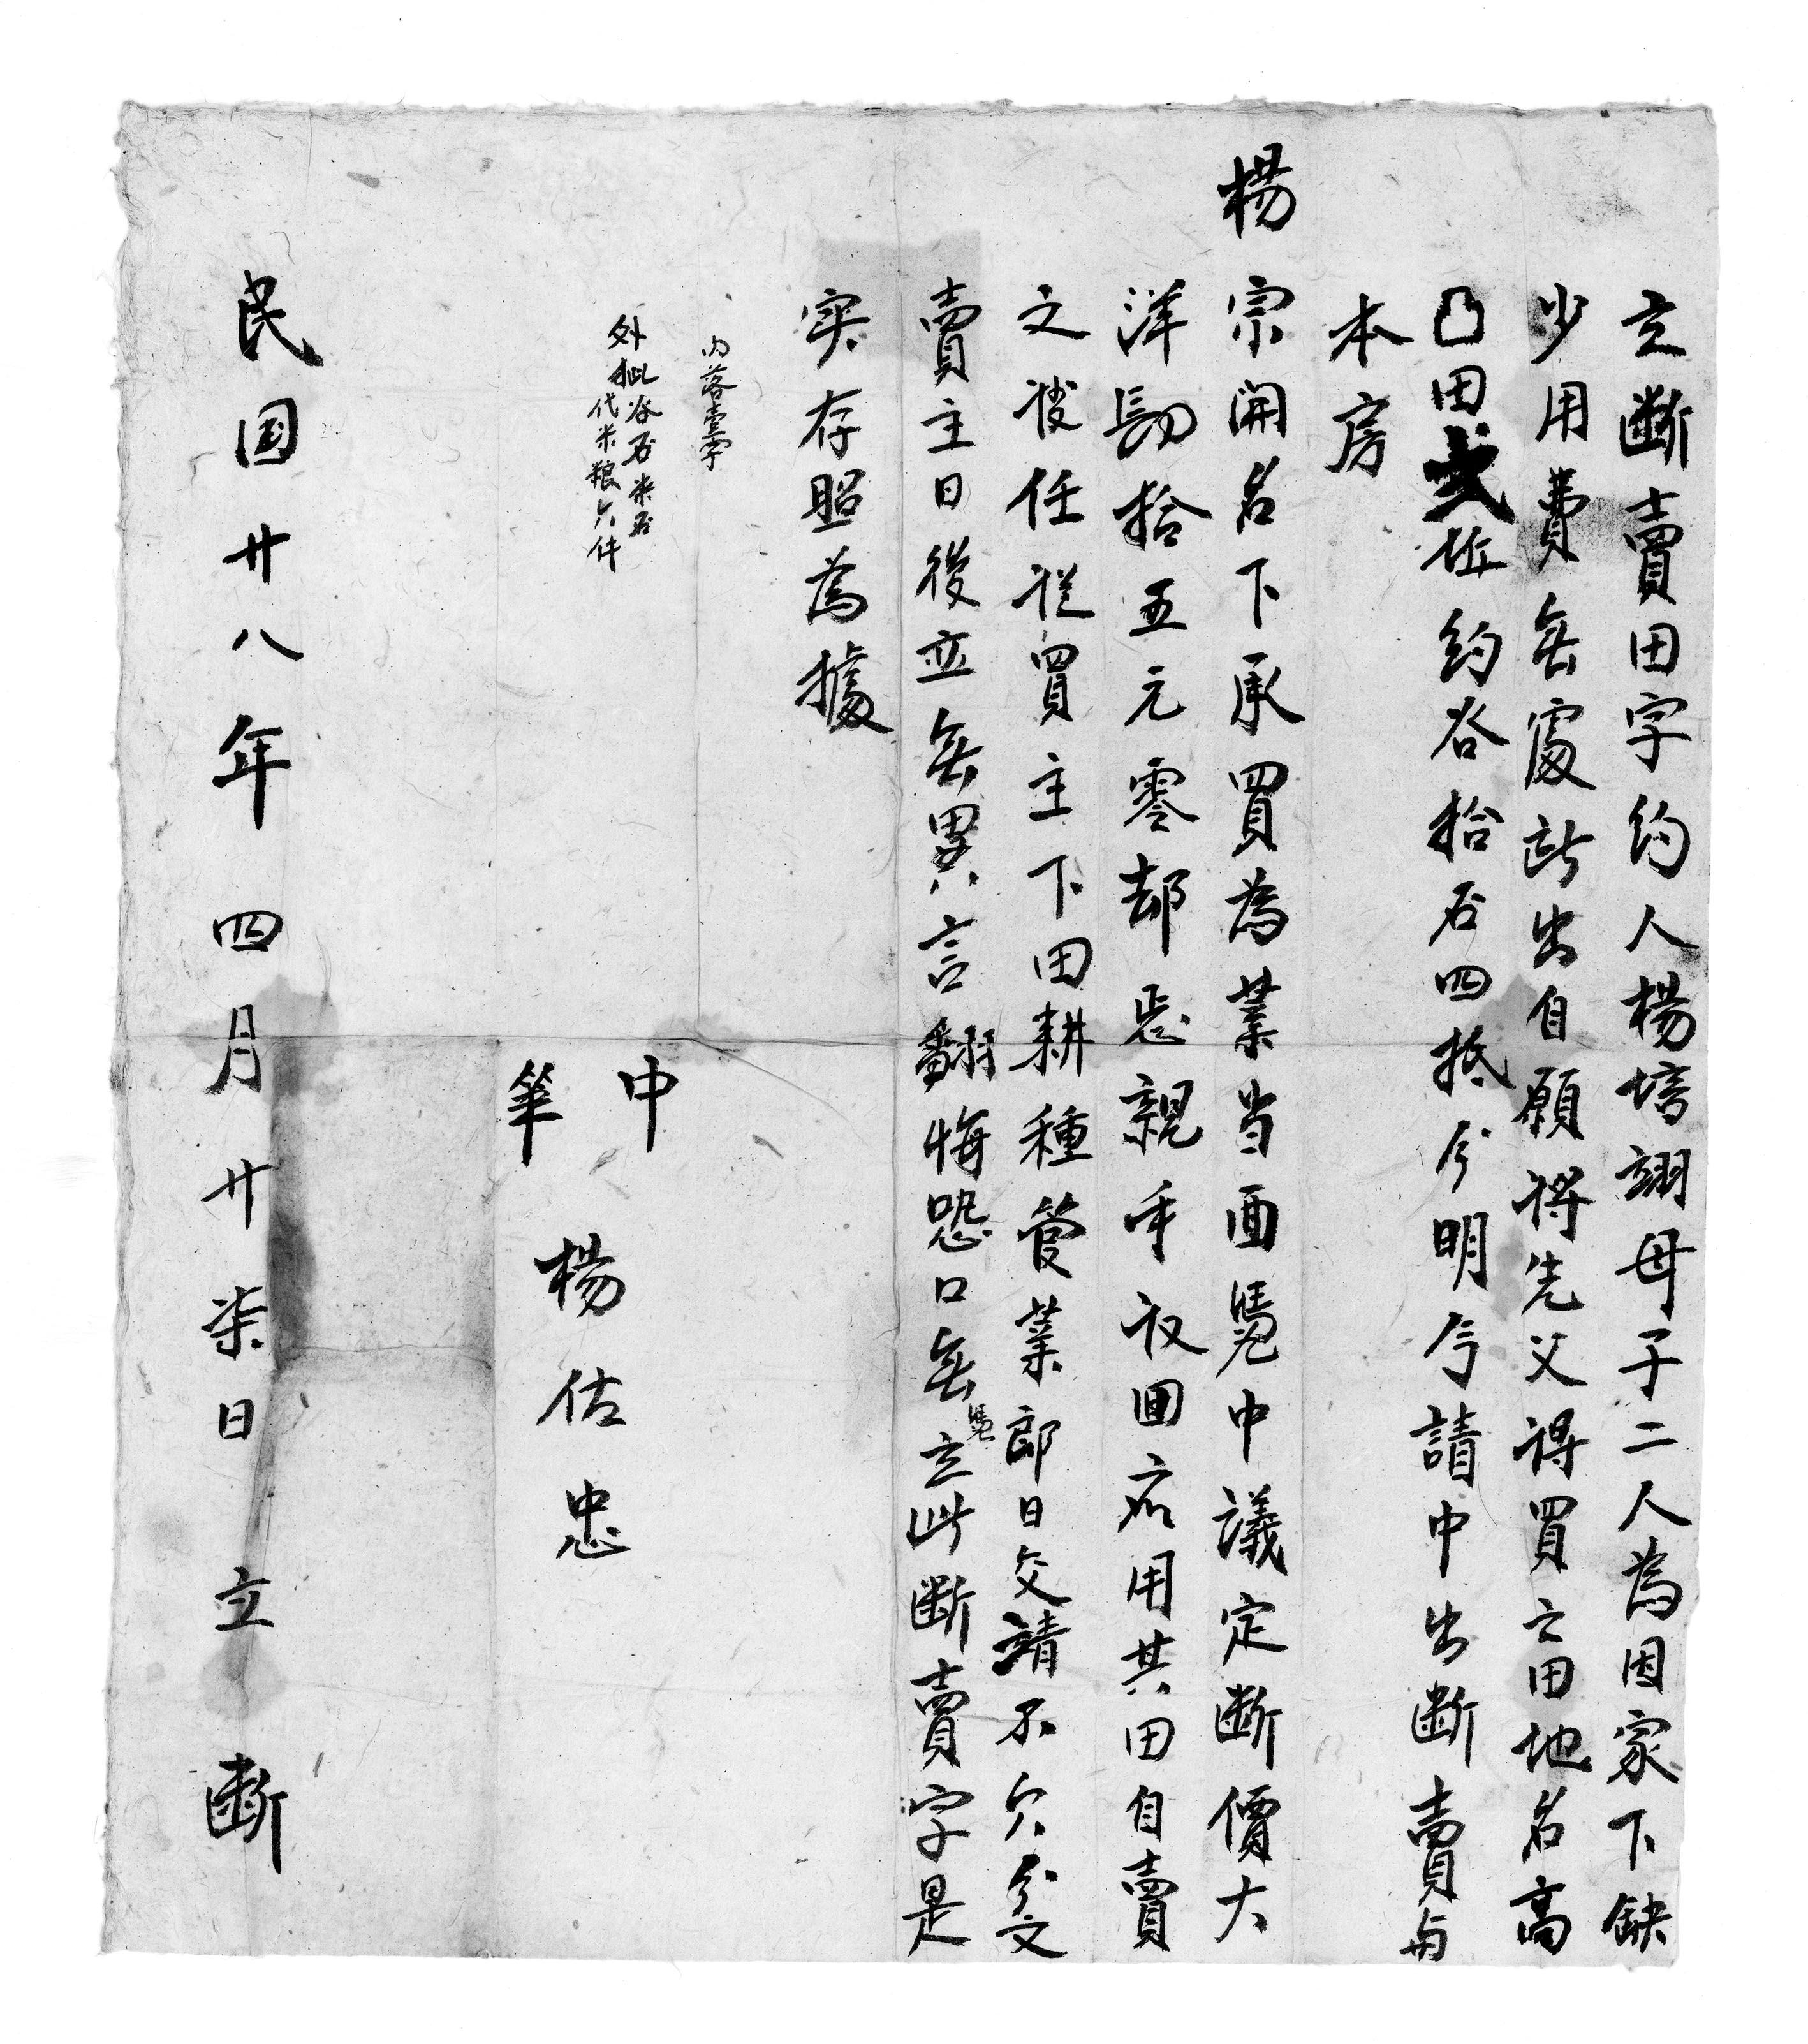 立断賣田字約人楊培翊母子二人為因家下缺
少用費無處訴出自願將先父得買之田地名高
凸田弍坵約谷拾石四抵分明今請中出断賣与
本房
楊宗開名下承買為業当面憑中議定断價大
洋拾五元零却忌親手收回應用其田自賣
之後任從買主下田耕種管業即日交請不欠分文
賣主日後並無異言翻悔恐口無憑立此断賣字是
实存照為據
内落壹字
外批谷石柒石
代米粮六件
中
筆
楊佑忠
民国廿八年四月廿柒日立断